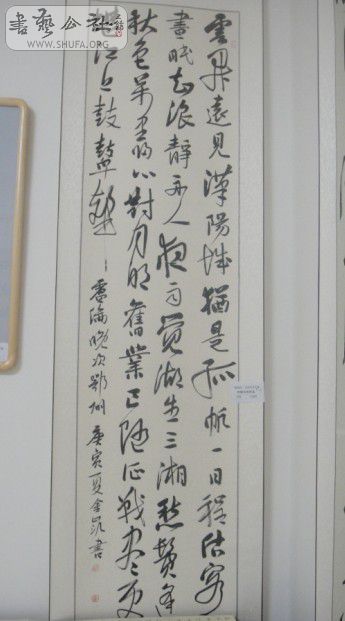 書藝公社
WWW.SHUFA.ORG
雲開遠見漢陽城猶是孤帆一日程估客
晝眠知浪靜舟人夜語覺潮生三湘愁鬢逢
秋色萬里歸心對月明舊業已隨征戰盡更
堪江上鼓鼙聲
盧倫晚次鄂州 庚寅夏金書